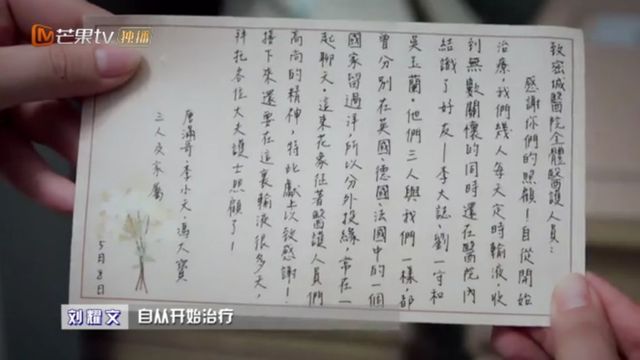 芒果tv 独播
致密城醫院全體醫護人員:
感謝你們的照顧！自從開始
治療,我們幾人每天定時輸液,收
到無數關懷的同時還在醫院內
結識了好友—李大誌、劉一守和
吳玉蘭。他們三人與我們一樣都
曾分別在英國、德國、法國中的一個
國家留過洋,所以分外投緣,常在一
起聊天。這束花象征著醫護人員們
高尚的精神,特此獻上以致感謝！
接下來還要在這裏輸液很多天,
拜托各位大夫護士照顧了！
唐滿哥、李小天、馮大寶
三人及家屬
5月8日
刘耀文 自从开始治疗